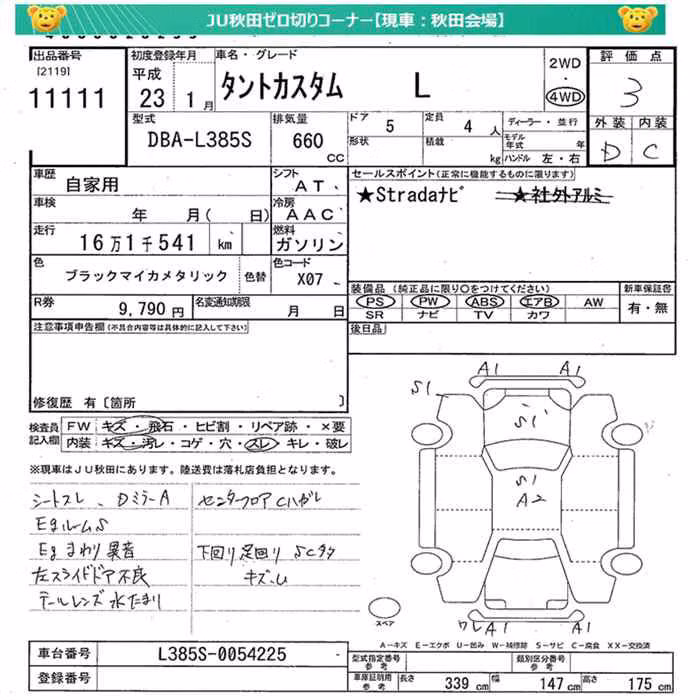 JU秋田ゼロ切りコーナー【現車：秋田会場】
出品番号 [2119] 11111
初度登録年月 平成 23 年 1月
車名・グレード タントカスタム L
2WD ・ 4WD
評価点 3
外装 D 内装 C
型式 DBA-L385S
排気量 660 CC
ドア 5 定員 4 人
形状 積載 kg
ディーラー・並行
モデル年式 年
ハンドル 左・右
車歴 自家用
シフト AT
車検 年 月( 日)
冷房 AAC
走行 16万1千541 km
燃料 ガソリン
色 ブラックマイカメタリック 色替
色コード X07
R券 9,790円 名変通知期限 月 日
セールスポイント(正常に機能するものに限ります)
★Stradaナビ ★社外アルミ
装備品 (純正品に限り○をつけてください)
PS PW ABS エアB AW
SR ナビ TV カワ
新車保証書 有・無
後日品
注意事項申告欄(不具合内容等は具体的に記入して下さい)
修復歴 有〔箇所 〕
検査員記入欄
FW キズ・飛石・ヒビ割・リペア跡・×要
内装 キズ・汚レ・コゲ・穴・スレ・キレ・破レ
※現車はJU秋田にあります。陸送費は落札店負担となります。
シートスレ、DミラーA
EgルームS
Egまわり異音
左スライドドア不良
テールレンズ水たまり
センターフロアCハガレ
下回り足回りSCタタ
キズ・U
A1 A1
S1
S1
S1
A2
ワレA1 A1
スペア
A－キズ E－エクボ U－凹み W－補修跡 S－サビ C－腐食 XX－交換済
車台番号 L385S-0054225
登録番号
型式指定番号 参考
類別区分番号 参考
車庫証明用 参考 長さ 339 cm 幅 147 cm 高さ 175 cm